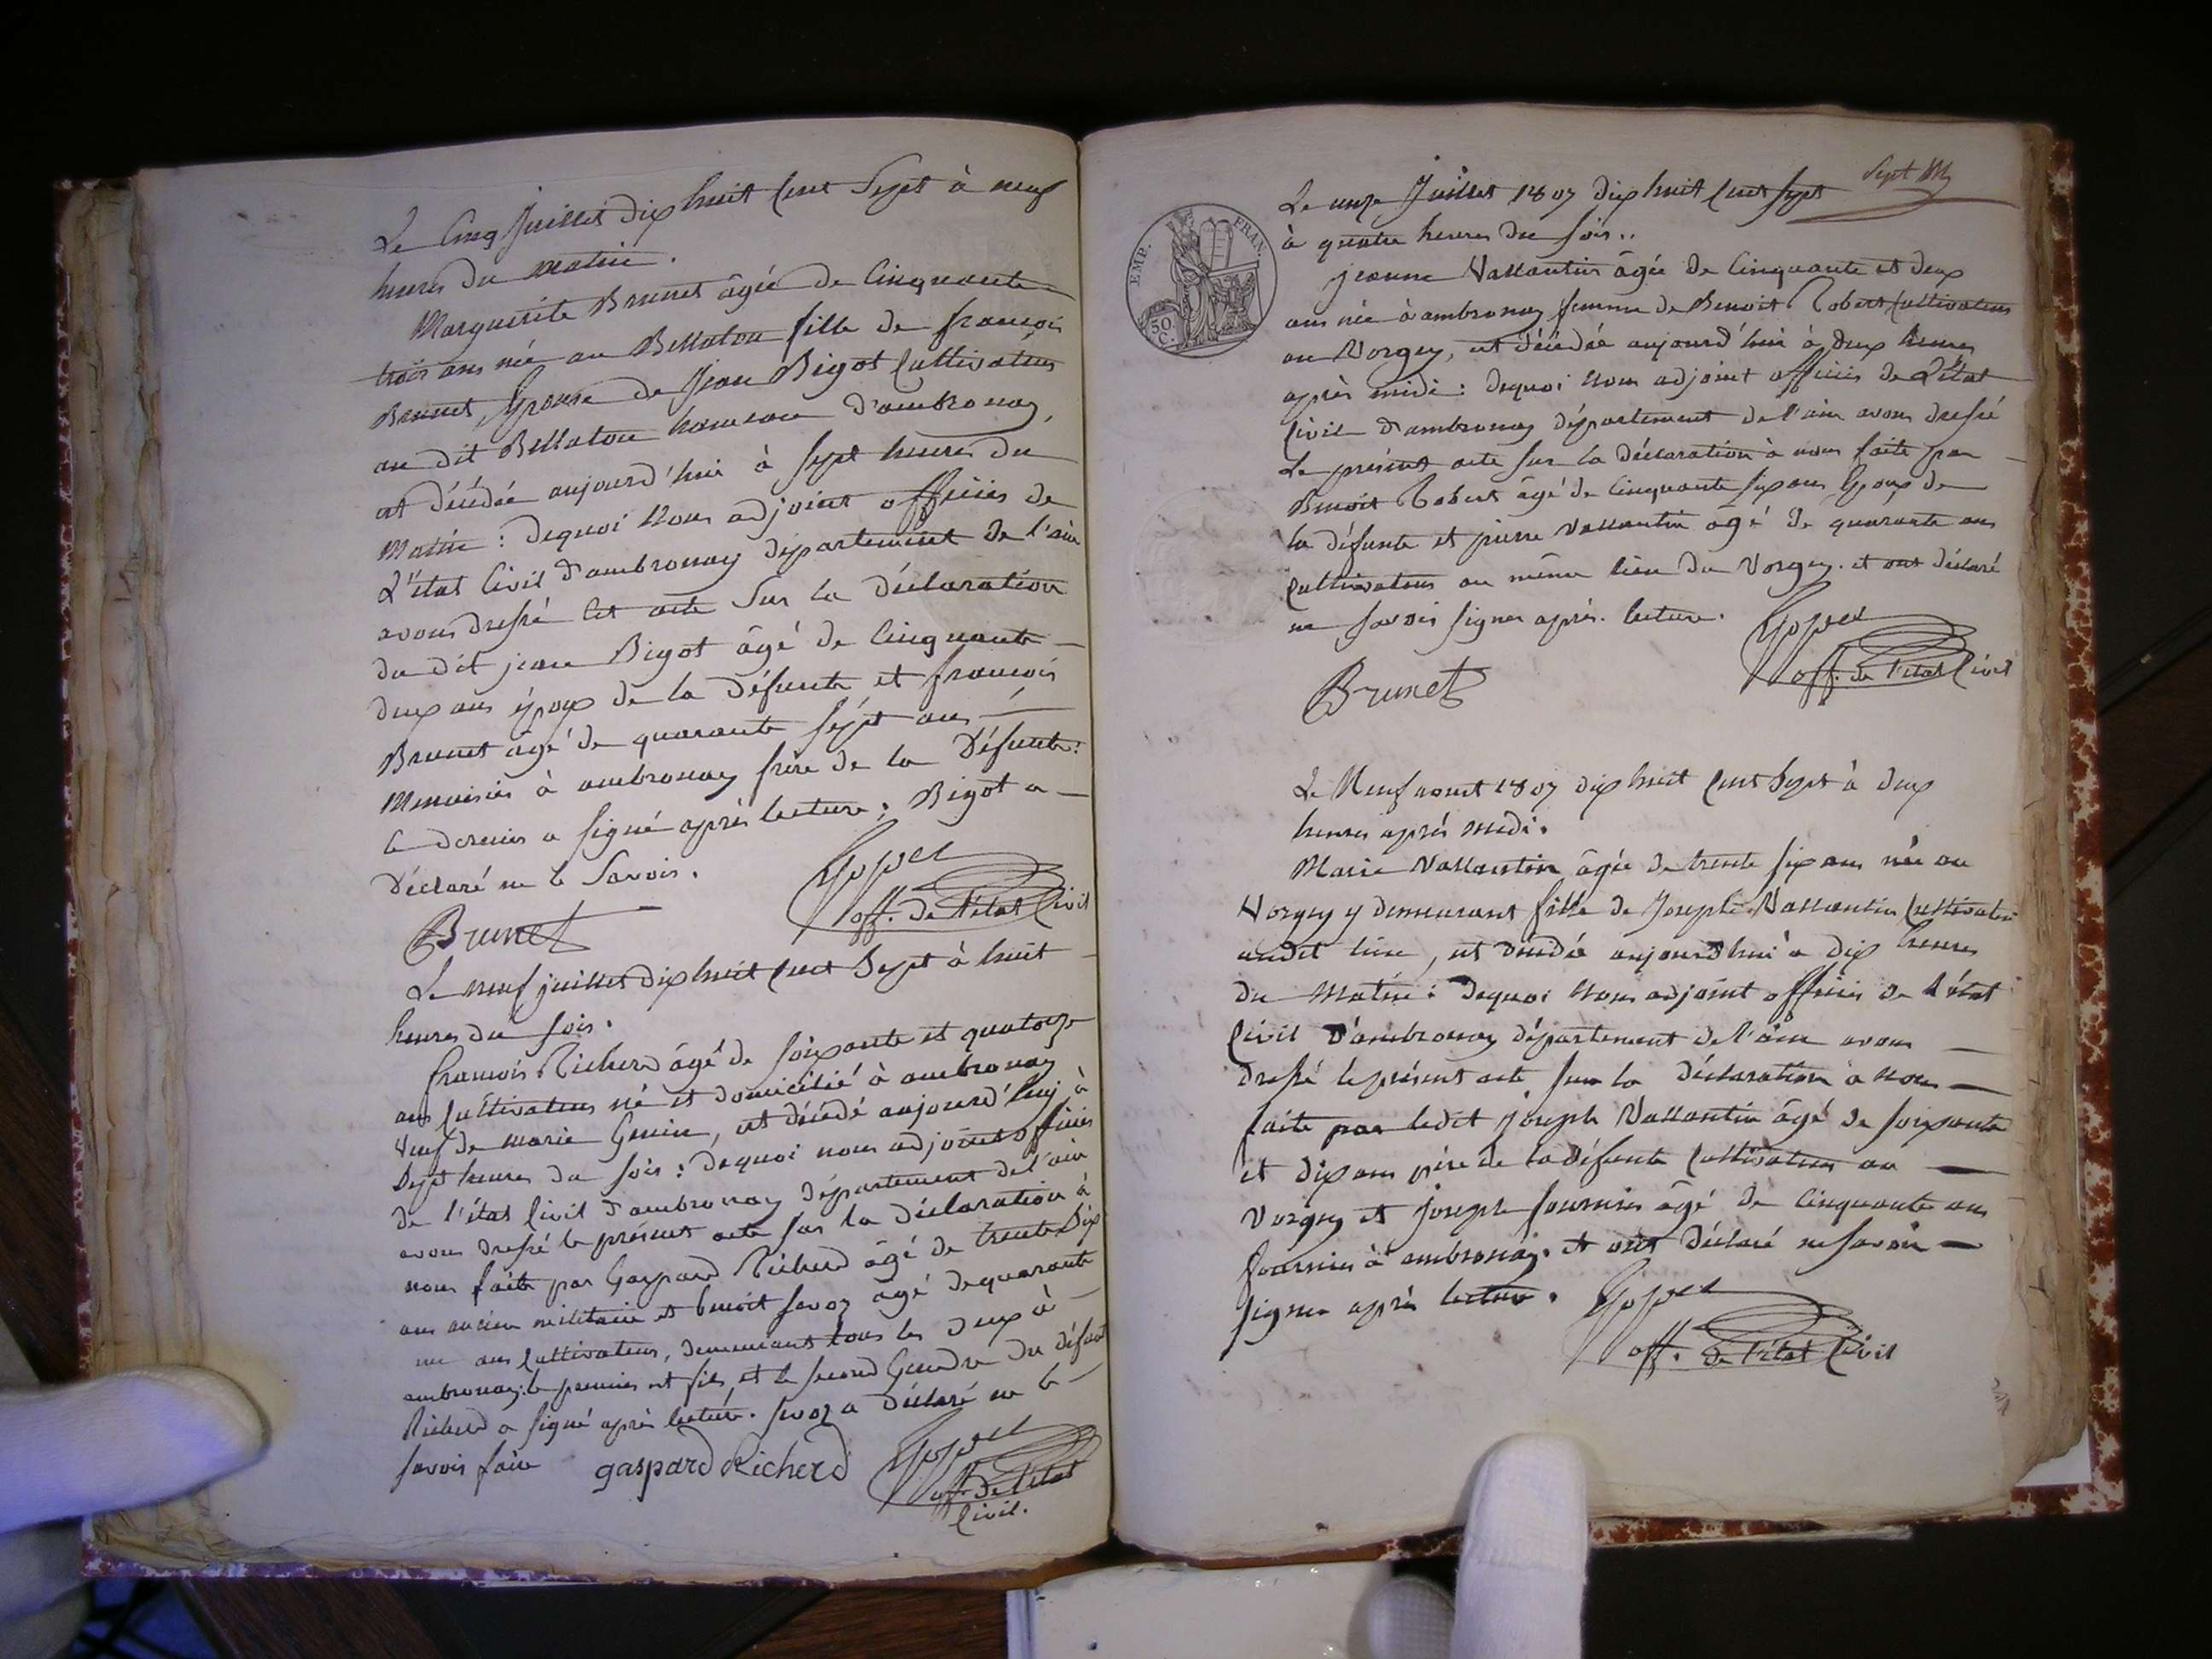 Le Cinq Juillet dix huit Cent Sept à neuf
heures du matin.
Marguerite Brunet âgée de Cinquante
trois ans née au Bellaton fille de françois
Brunet, Epouse de Jean Bigot Cultivateur
au dit Bellaton hameau d'ambronay,
est décédée aujourd'hui à sept heures du
Matin : dequoi Nous adjoint officier de
L'état Civil d'ambronay département de l'ain
avons dressé Cet acte Sur la déclaration
du dit jean Bigot âgé de Cinquante
deux ans époux de la défunte et françois
Brunet âgé de quarante sept ans
Menuisier à ambronay frère de la Défunte:
le dernier a signé après lecture; Bigot a
Déclaré ne le Savoir.
off. de l'état Civil
Brunet
Le neuf juillet dix huit Cent Sept à huit
heures du soir.
françois Richerd âgé de soixante et quatorze
ans Cultivateur né et domicilié à ambronay
veuf de marie Genin, est décédé aujourd'huy à
Sept heures du soir : dequoi nous adjoint officier
de l'état Civil d'ambronay département de l'ain
avons dressé le présent acte sur la déclaration à
nous faite par Gaspard Richerd âgé de trente Six
ans ancien militaire et benoit Savoz âgé de quarante
un ans Cultivateur, demeurant tous les deux à
ambronay. le premier est fils, et le second Gendre du défunt
Richerd a signé après lecture. Savoz a déclaré ne le
savoir faire
gaspard Richerd
off. de l'état
Civil.
Sept
Le onze Juillet 1807 dix huit Cent sept
à quatre heures du soir..
EMP. FRAN.
50 C.
jeanne Vallantin âgée de Cinquante et deux
ans née à ambronay femme de Benoit Robert Cultivateur
au Vorgey, est décédée aujourd'hui à deux heures
après midi : dequoi Nous adjoint officier de L'état
Civil d'ambronay département de l'ain avons dressé
Le présent acte sur la déclaration à nous faite par
Benoit Robert âgé de Cinquante six ans Epoux de
la défunte et pierre Vallantin âgé de quarante ans
Cultivateur au même lieu du Vorgey. et ont déclaré
ne savoir signer après lecture.
off. de l'état Civil
Brunet
Le Neuf aoust 1807 dix huit Cent Sept à deux
heures après midi.
Marie Vallantin âgée de trente six ans née au
Vorgey y demeurant fille de Joseph Vallantin Cultivateur
audit lieu, est décédée aujourd'hui à dix heures
du Matin : dequoi Nous adjoint officier de l'état
Civil d'ambronay département de l'ain avons
dressé le présent acte sur la déclaration à Nous
faite par ledit joseph Vallantin âgé de soixante
et dix ans père de la défunte Cultivateur au
Vorgey et joseph fournier âgé de Cinquante ans
fournier à ambronay. et ont déclaré ne savoir
signer après lecture.
off. de l'état Civil